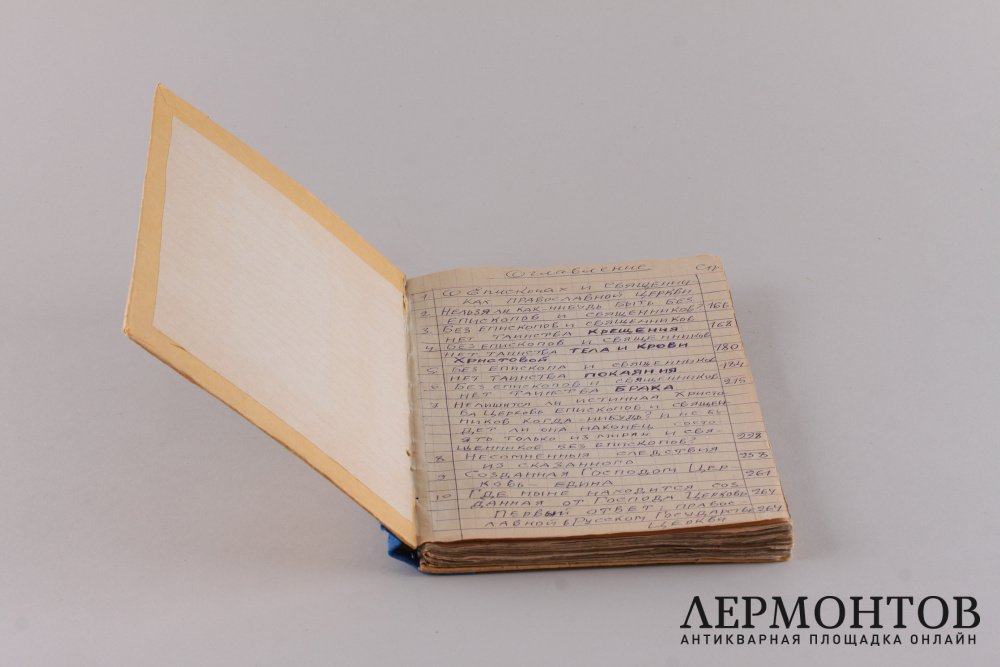 Оглавление Стр.
1 О Епископах и священни
ках православной церкви
2. Нельзя ли как-нибудь быть без
епископов и священников? 166
3. Без епископов и священников
нет таинства крещения 168
4. Без епископов и священников
нет таинства тела и крови 180
Христовой
5. Без епископа и священников 184
нет таинства покаяния
6 Без епископов и священников 215
нет таинства брака
7 Нелишится ли истинная Христо
ва церковь епископов и священ
ников когда нибудь? и не бу
дет ли она наконец состо
ять только из мирян и свя
щенников без епископов? 228
8 Несомненныя следствия 258
из сказанного
9 Созданная Господом Цер 261
ковь - едина
10 Где ныне находится соз
данная от Господа Церковь 264
Первый ответ: правос
лавной в Русском Государстве 264
Церкви
ЛЕРМОНТОВ
АНТИКВАРНАЯ ПЛОЩАДКА ОНЛАЙН